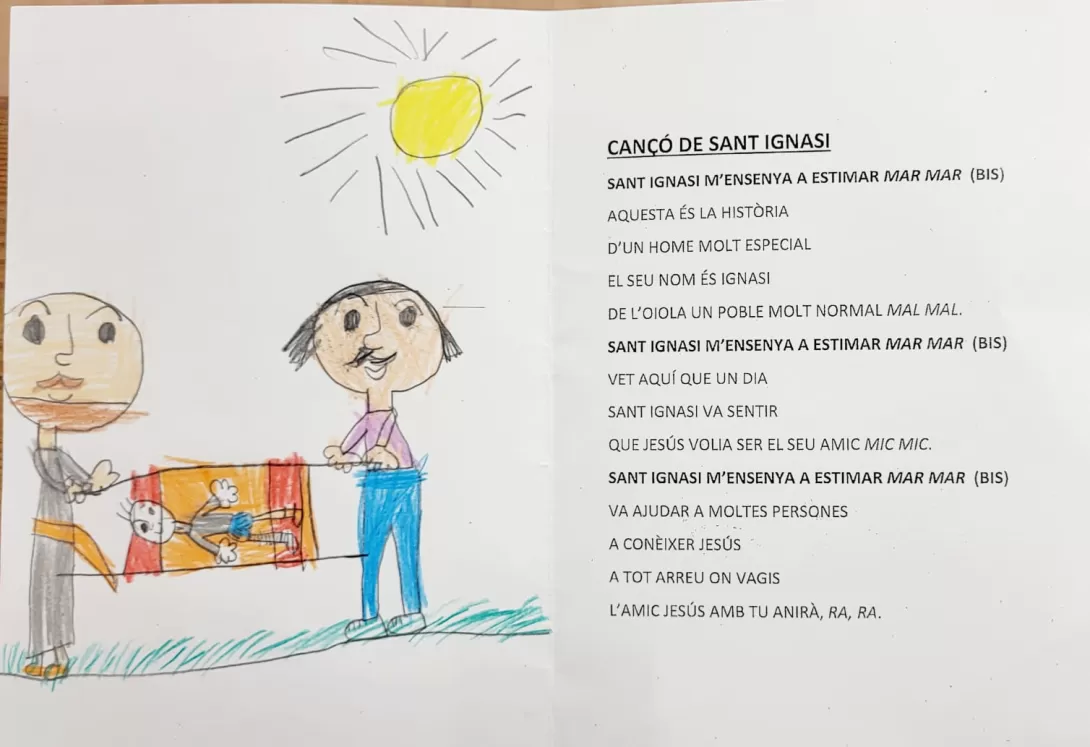 CANÇÓ DE SANT IGNASI
SANT IGNASI M'ENSENYA A ESTIMAR MAR MAR (BIS)
AQUESTA ÉS LA HISTÒRIA
D'UN HOME MOLT ESPECIAL
EL SEU NOM ÉS IGNASI
DE L'OIOLA UN POBLE MOLT NORMAL MAL MAL.
SANT IGNASI M'ENSENYA A ESTIMAR MAR MAR (BIS)
VET AQUÍ QUE UN DIA
SANT IGNASI VA SENTIR
QUE JESÚS VOLIA SER EL SEU AMIC MIC MIC.
SANT IGNASI M'ENSENYA A ESTIMAR MAR MAR (BIS)
VA AJUDAR A MOLTES PERSONES
A CONÈIXER JESÚS
A TOT ARREU ON VAGIS
L'AMIC JESÚS AMB TU ANIRÀ, RA, RA.